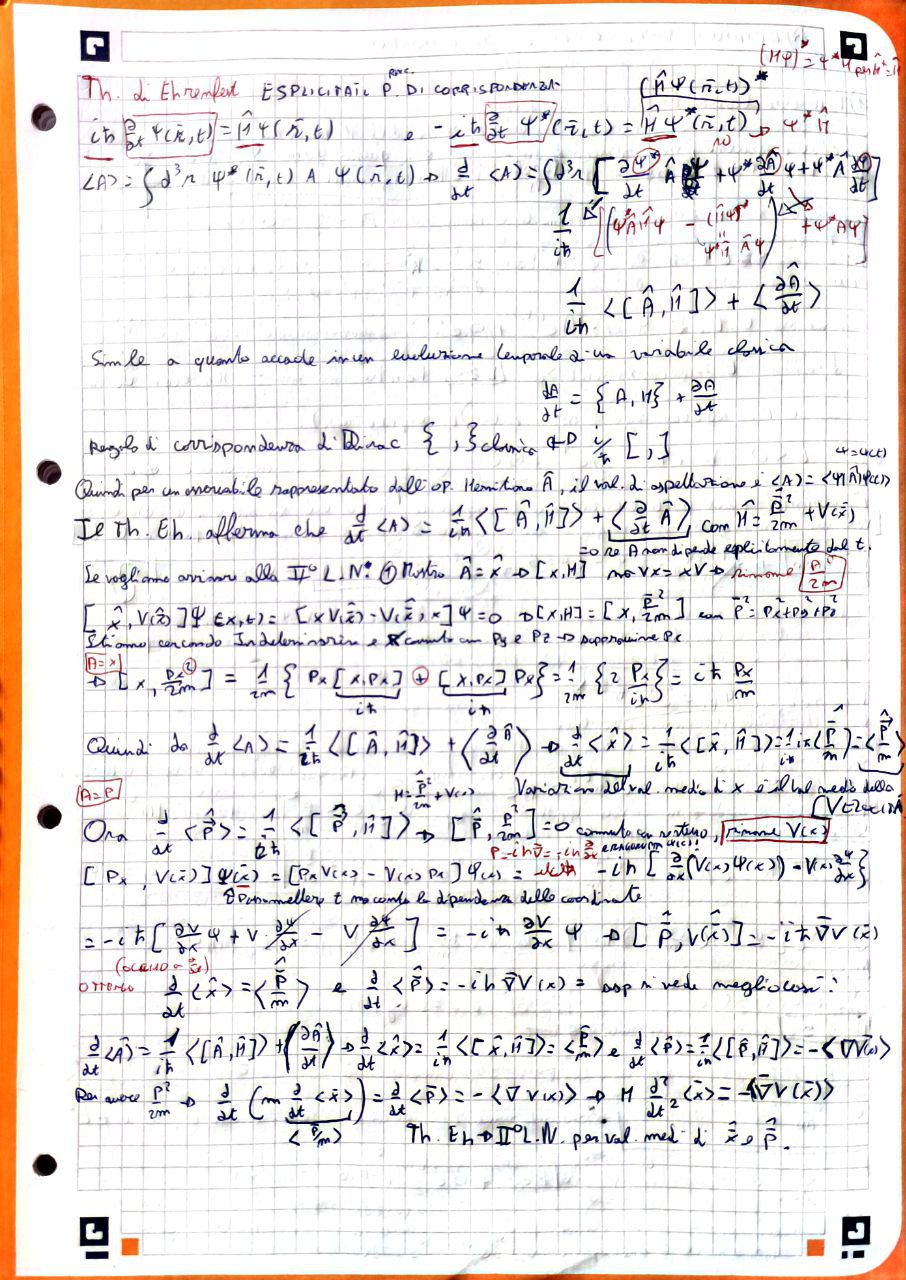 (Hψ)* = ψ*H
Th. di Ehrenfest ESPLICITA IL P. DI CORRISPONDENZA (Ĥψ(r̄,t))*
iħ ∂/∂t ψ(r̄,t) = Ĥψ(r̄,t) e -iħ ∂/∂t ψ*(r̄,t) = Ĥψ*(r̄,t) → ψ*Ĥ
no
<A> = ∫d³r ψ*(r̄,t) A ψ(r̄,t) → d/dt <A> = ∫d³r [∂ψ*/∂t Â ψ + ψ* ∂Â/∂t ψ + ψ* Â ∂ψ/∂t]
1/iħ [(ψ*ÂĤψ - (Ĥψ)* + ψ*Aψ]
ψ*Ĥ Âψ
1/iħ <[Â,Ĥ]> + <∂Â/∂t>
Simile a quanto accade in un evoluzione temporale di una variabile classica
dA/dt = {A,H} + ∂A/∂t
Regola di corrispondenza di Dirac { , } classica ↔ i/ħ [ , ]
ψ=ψ(t)
Quindi per un osservabile rappresentato dall'op. Hermitiano Â, il val. di aspettazione è <A> = <ψ|Â|ψ(t)>
Il Th. Eh. afferma che d/dt <A> = 1/iħ <[Â,Ĥ]> + <∂/∂t Â> con Ĥ = p̄²/2m + V(x̄)
=0 se A non dipende esplicitamente dal t.
Se vogliamo arrivare alla II° L.N: ① Mostro Â = x̂ → [x,H] ma Vx = xV → rimane p²/2m
[x̂, V(x̄)]ψ(x,t) = [xV(x̄) - V(x̄)x]ψ = 0 → [x,H] = [x, p̄²/2m] con p̄² = Px²+Py²+Pz²
Stiamo cercando Indeterminazione e x commuta con Py e Pz → sopravvive Px
A=x
→ [x, Px²/2m] = 1/2m {Px[x,Px] + [x,Px]Px} = 1/2m {2 Px/iħ} = iħ Px/m
iħ iħ
Quindi da d/dt <A> = 1/iħ <[Â,Ĥ]> + <∂Â/∂t> → d/dt <x̂> = 1/iħ <[x̄,Ĥ]> = 1/iħ iħ <p̄/m> = <p̄/m>
A=P H = p̄²/2m + V(x) Variazione del val. medio di x è il val. medio della VELOCITÀ
Ora d/dt <P̂> = 1/iħ <[P̂,Ĥ]> → [P̂, p²/2m] = 0 commuta con se stesso, rimane V(x)
P=-iħ∇̄ = -iħ ∂/∂x
[Px, V(x̄)]ψ(x̄) = [PxV(x) - V(x)Px]ψ(x) = -iħ [∂/∂x (V(x)ψ(x)) - V(x) ∂ψ/∂x]
t ma conta la dipendenza delle coordinate
= -iħ [∂V/∂x ψ + V ∂ψ/∂x - V ∂ψ/∂x] = -iħ ∂V/∂x ψ → [P̂, V(x̄)] = -iħ ∇̄V(x̄)
ottengo d/dt <x̂> = <P̂/m> e d/dt <P̂> = -iħ ∇̄V(x) = si vede meglio così:
d/dt <Â> = 1/iħ <[Â,Ĥ]> + <∂Â/∂t> → d/dt <x̂> = 1/iħ <[x̄,Ĥ]> = <p̄/m> e d/dt <p̄> = 1/iħ <[p̄,Ĥ]> = -<∇V(x)>
Per avere p²/2m → d/dt (m d/dt <x̄>) = d/dt <p̄> = -<∇V(x)> → M d²/dt² <x̄> = -<∇̄V(x̄)>
<p̄/m> Th. Eh → II° L.N. per val. medi di x̄ e p̄.